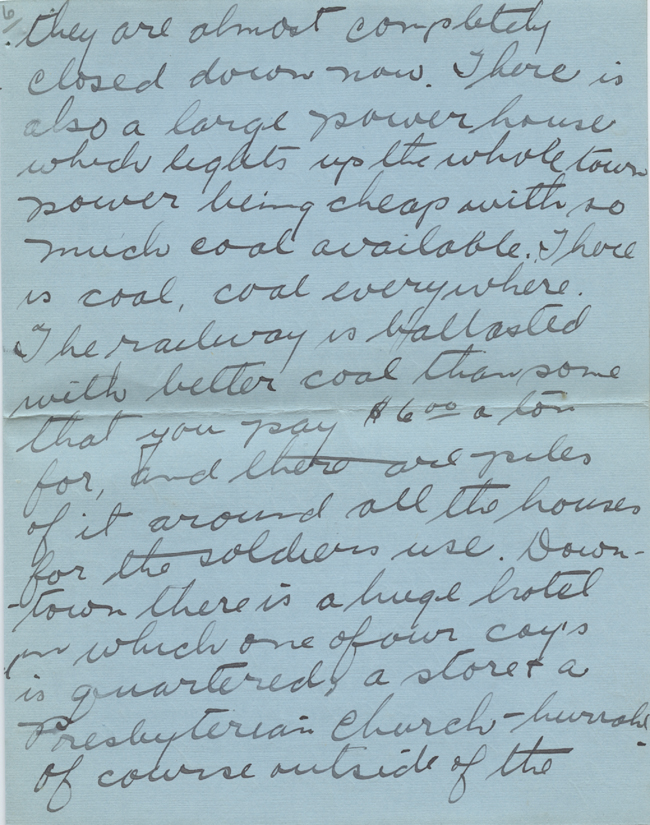 6/
they are almost completely
closed down now. There is
also a large power house
which lights up the whole town
power being cheap with so
much coal available. There
is coal, coal everywhere.
The railway is ballasted
with better coal than some
that you pay $6.00 a ton
for, and there are piles
of it around all the houses
for the soldiers use. Down-
town there is a huge hotel
in which one of our coys
is quartered, a store & a
Presbyterian Church - hurrah!
Of course outside of the